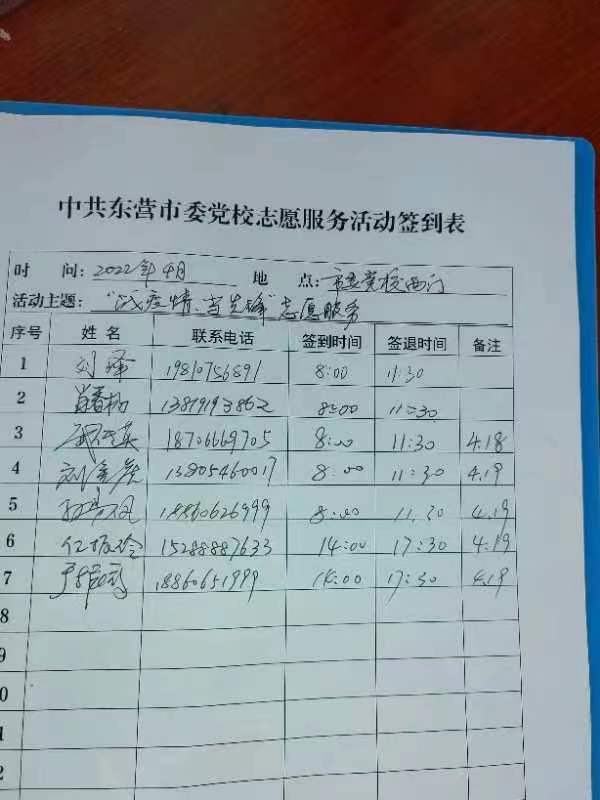 中共东营市委党校志愿服务活动签到表
时 间: 2022年4月 地 点: 市委党校西门
活动主题: “战疫情、当先锋”志愿服务
序号 姓名 联系电话 签到时间 签退时间 备注
1 刘泽 19810756891 8:00 11:30
2 13819193862 8:00 11:30
3 18706669705 8:00 11:30 4.18
4 13805460017 8:00 11:30 4.19
5 18860626999 8:00 11:30 4.19
6 15288887633 14:00 17:30 4.19
7 18860651999 14:00 17:30 4.19
8
9
0
1
2